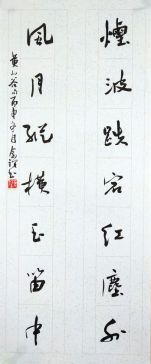 烟波跌宕红尘外
风月纵横玉笛中
黄山谷句丙申年月